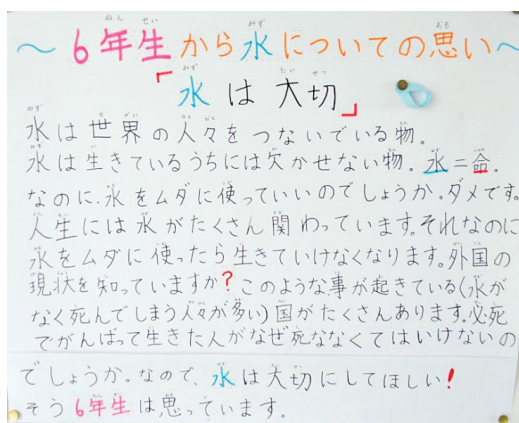 ～6年生から水についての思い～
「水は大切」
水は世界の人々をつないでいる物。
水は生きているうちには欠かせない物。水＝命。
なのに、水をムダに使っていいのでしょうか。ダメです。
人生には水がたくさん関わっています。それなのに
水をムダに使ったら生きていけなくなります。外国の
現状を知っていますか？このような事が起きている(水が
なく死んでしまう人々が多い)国がたくさんあります。必死
でがんばって生きた人がなぜ死ななくてはいけないの
でしょうか。なので、水は大切にしてほしい！
そう6年生は思っています。